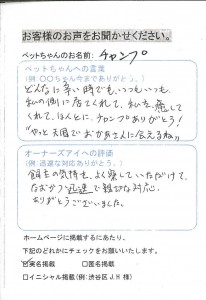 お客様のお声をお聞かせください。
ペットちゃんのお名前: チャンプ
ペットちゃんへの言葉
(例:〇〇ちゃん今までありがとう。)
どんなに辛い時でも、いつもいつも
私の側に居てくれて、私を癒して
くれて、ほんとに、チャンプありがとう!
"やっと天国でおかあさんに会えるね"
オーナーズアイへの評価
(例:迅速な対応ありがとう。)
飼主の気持も、よく察していただけて、
なおかつ迅速で親切な対応
ありがとうございました。
ホームページに掲載するにあたり、
下記のどれかにチェックをお願いいたします。
☑実名掲載 □匿名掲載
□イニシャル掲載(例:渋谷区J.H様)